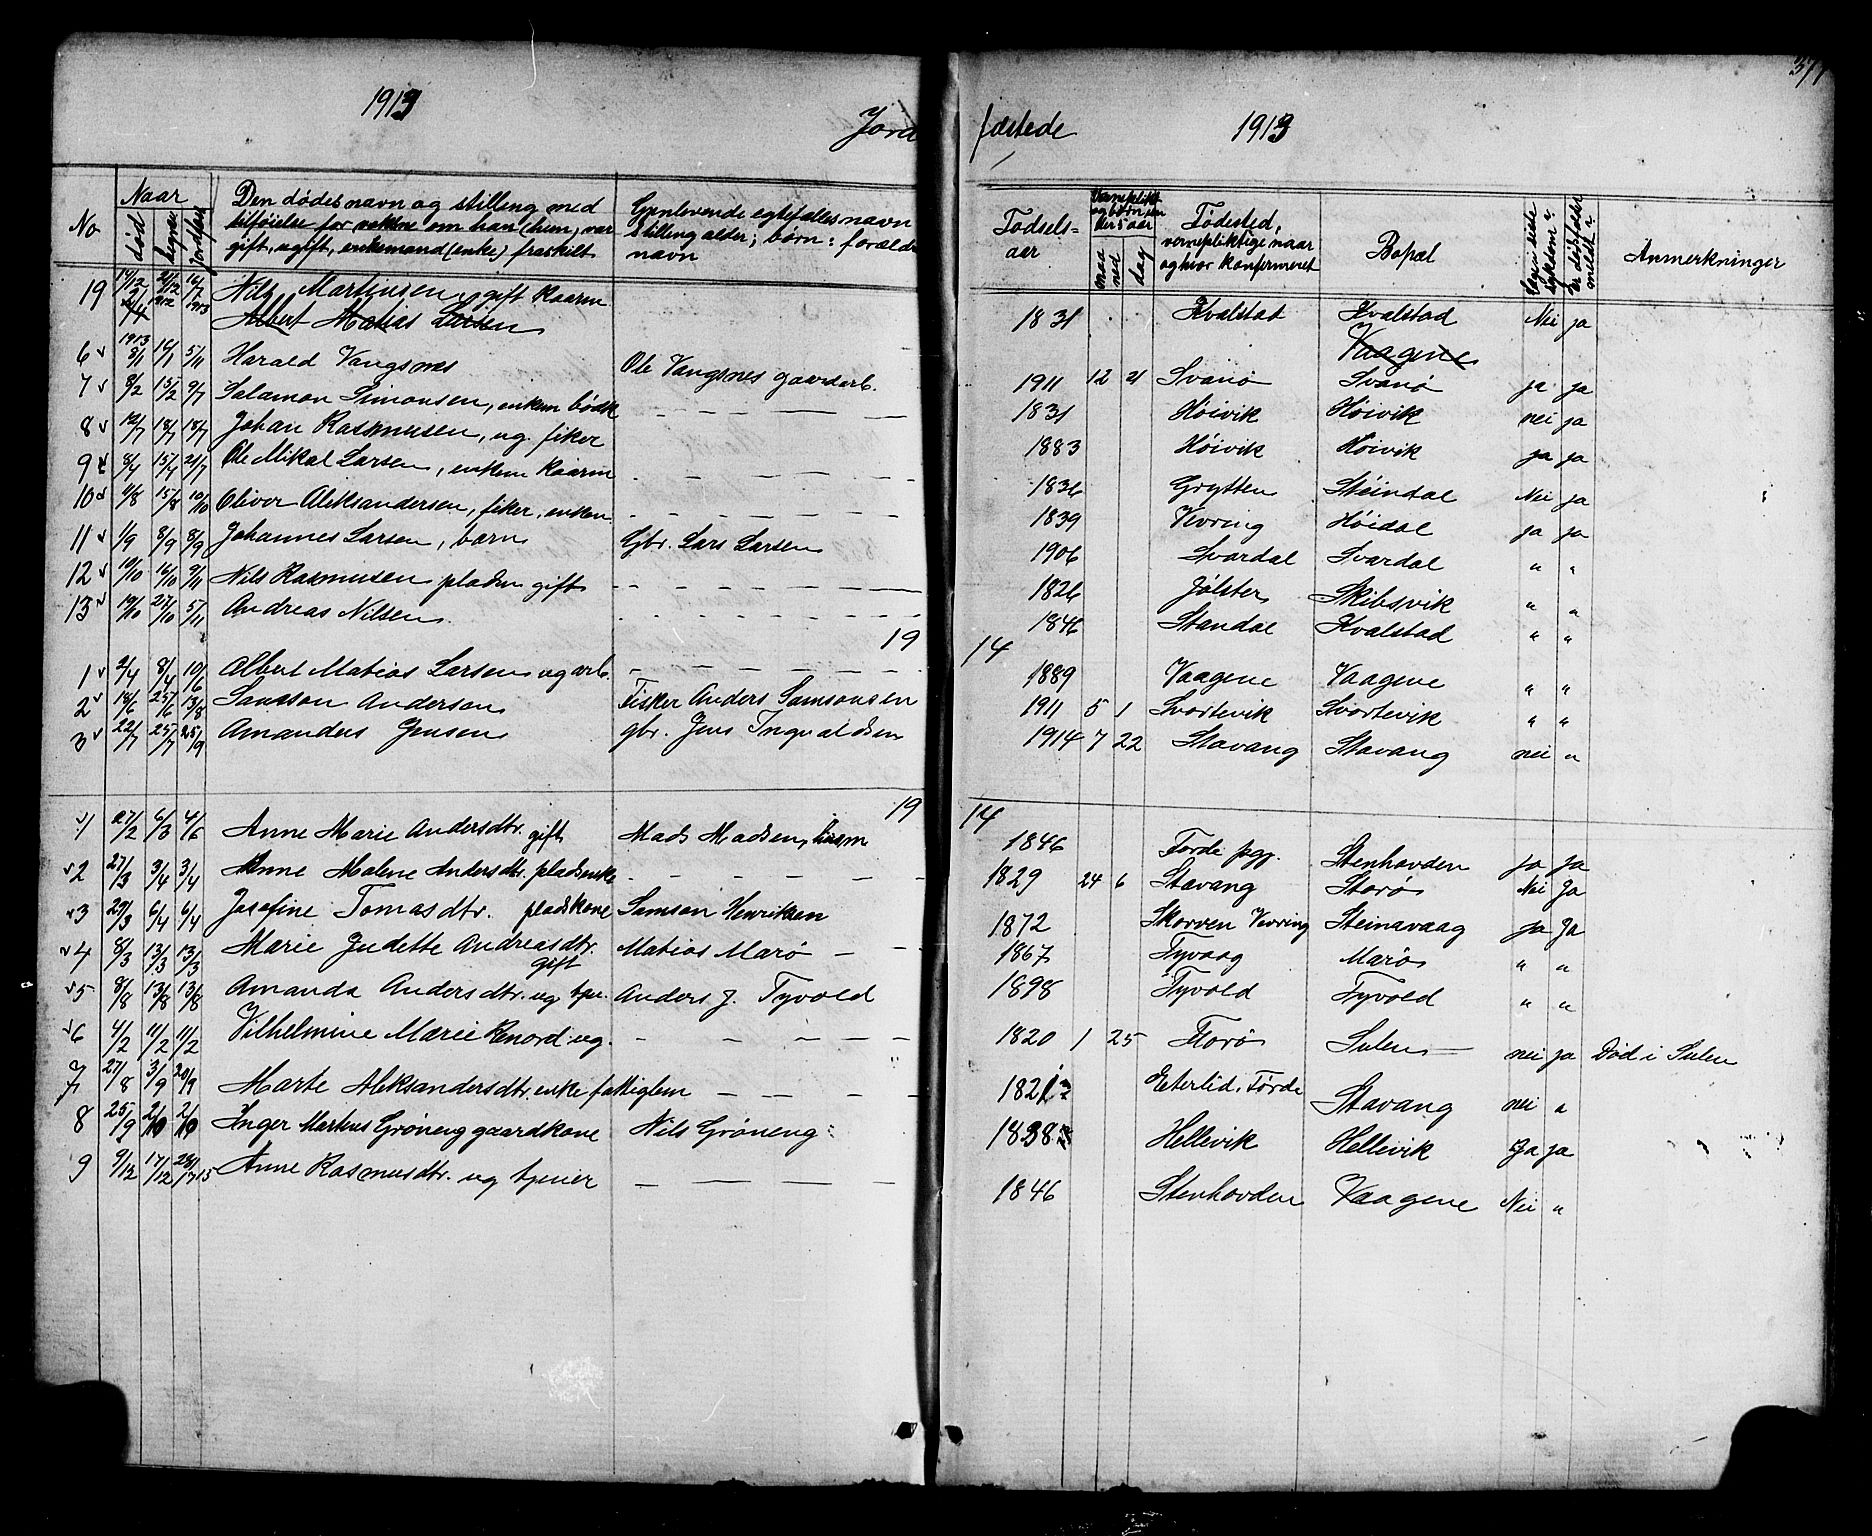 377
1913
Jordfæstede
1913
No
Naar
død
begravet
jordfæstet
Den dødes navn og stilling med
tilføielse for voksne om han (hun) var
gift, ugift, enkemand (enke) fraskilt
Gjenlevende egtefælles navn
Stilling alder; børn: foræld
navn
Fødsels-
aar
Vernepligt
og børn un
der 5 aar
maaned
dag
Fødested,
vernepliktige naar
og hvor konfirmeret
Bopæl
Anmerkninger
19 14/12 21/12 16/7 1913 Nils Martinsen gift kaarm 1831 Kvalstad Kvalstad Nei ja
Albert Matias Larsen Vaagene
6 1913 8/1 16/1 5/11 Harald Vangsnes Ole Vangsnes gaardarb. 1911 12 21 Svanø Svanø ja ja
7 8/2 15/2 9/7 Salamon Simonsen, enkem bødk 1831 Høivik Høivik nei ja
8 12/7 18/7 18/7 Johan Rasmusen, ug. fiker 1883 Høivik Høivik ja ja
9 8/4 15/4 21/7 Ole Mikal Larsen, enkem kaarm 1836 Grytten Steindal Nei ja
10 4/8 15/8 10/10 Oliver Aleksandersen, fiker, enkem 1839 Vevring Høidal ja ja
11 1/9 8/9 8/9 Johannes Larsen, barn Gbr. Lars Larsen 1906 Svardal Svardal " "
12 10/10 16/10 9/11 Nils Rasmusen pladsm gift 1826 Jølster Skibsvik " "
13 19/10 27/10 5/11 Andreas Nilsen 1846 Standal Kvalstad " "
19 14
1 2/4 8/4 10/6 Albert Matias Larsen ug arb. 1889 Vaagene Vaagene " "
2 18/6 25/6 13/8 Samson Anderson Fisker Anders Samsonsen 1911 5 1 Svortevik Svortevik " "
3 22/7 25/7 25/9 Amandus Jensen gbr. Jens Ingvaldsen 1914 7 22 Stavang Stavang nei "
19 14
1 27/2 6/3 4/6 Anne Marie Andersdtr. gift Mads Madsen, husm 1846 Førde pgj. Stenhovden ja ja
2 27/3 3/4 3/4 Anne Malene Andersdtr. pladsenke 1829 24 6 Stavang Storø Nei Ja
3 29/3 6/4 6/4 Josefine Tomasdtr. pladskone Samson Henriksen 1872 Skorven Vevring Steinavaag ja Ja
4 8/3 13/3 13/3 Marie Judette Andreasdtr. gift Matias Marø 1867 Tyvaag Marø " "
5 8/8 13/8 13/8 Amanda Andersdtr. ug tjen. Anders J. Tyvold 1898 Tyvold Tyvold " "
6 4/2 11/2 11/2 Vilhelmine Marie Renord ug. 1820 1 25 Florø Sulen nei ja Død i Sulen
7 27/8 3/9 20/9 Marte Aleksandersdtr. enke fattiglem 1821 Førde Stavang nei "
8 25/9 2/10 2/10 Inger Martins Grøneng gaardkone Nils Grøneng 1838 Hellevik Hellevik Ja ja
9 9/12 17/12 28/1 1715 Anne Rasmusdtr. ug tjener 1846 Stenhovden Vaagene Nei "